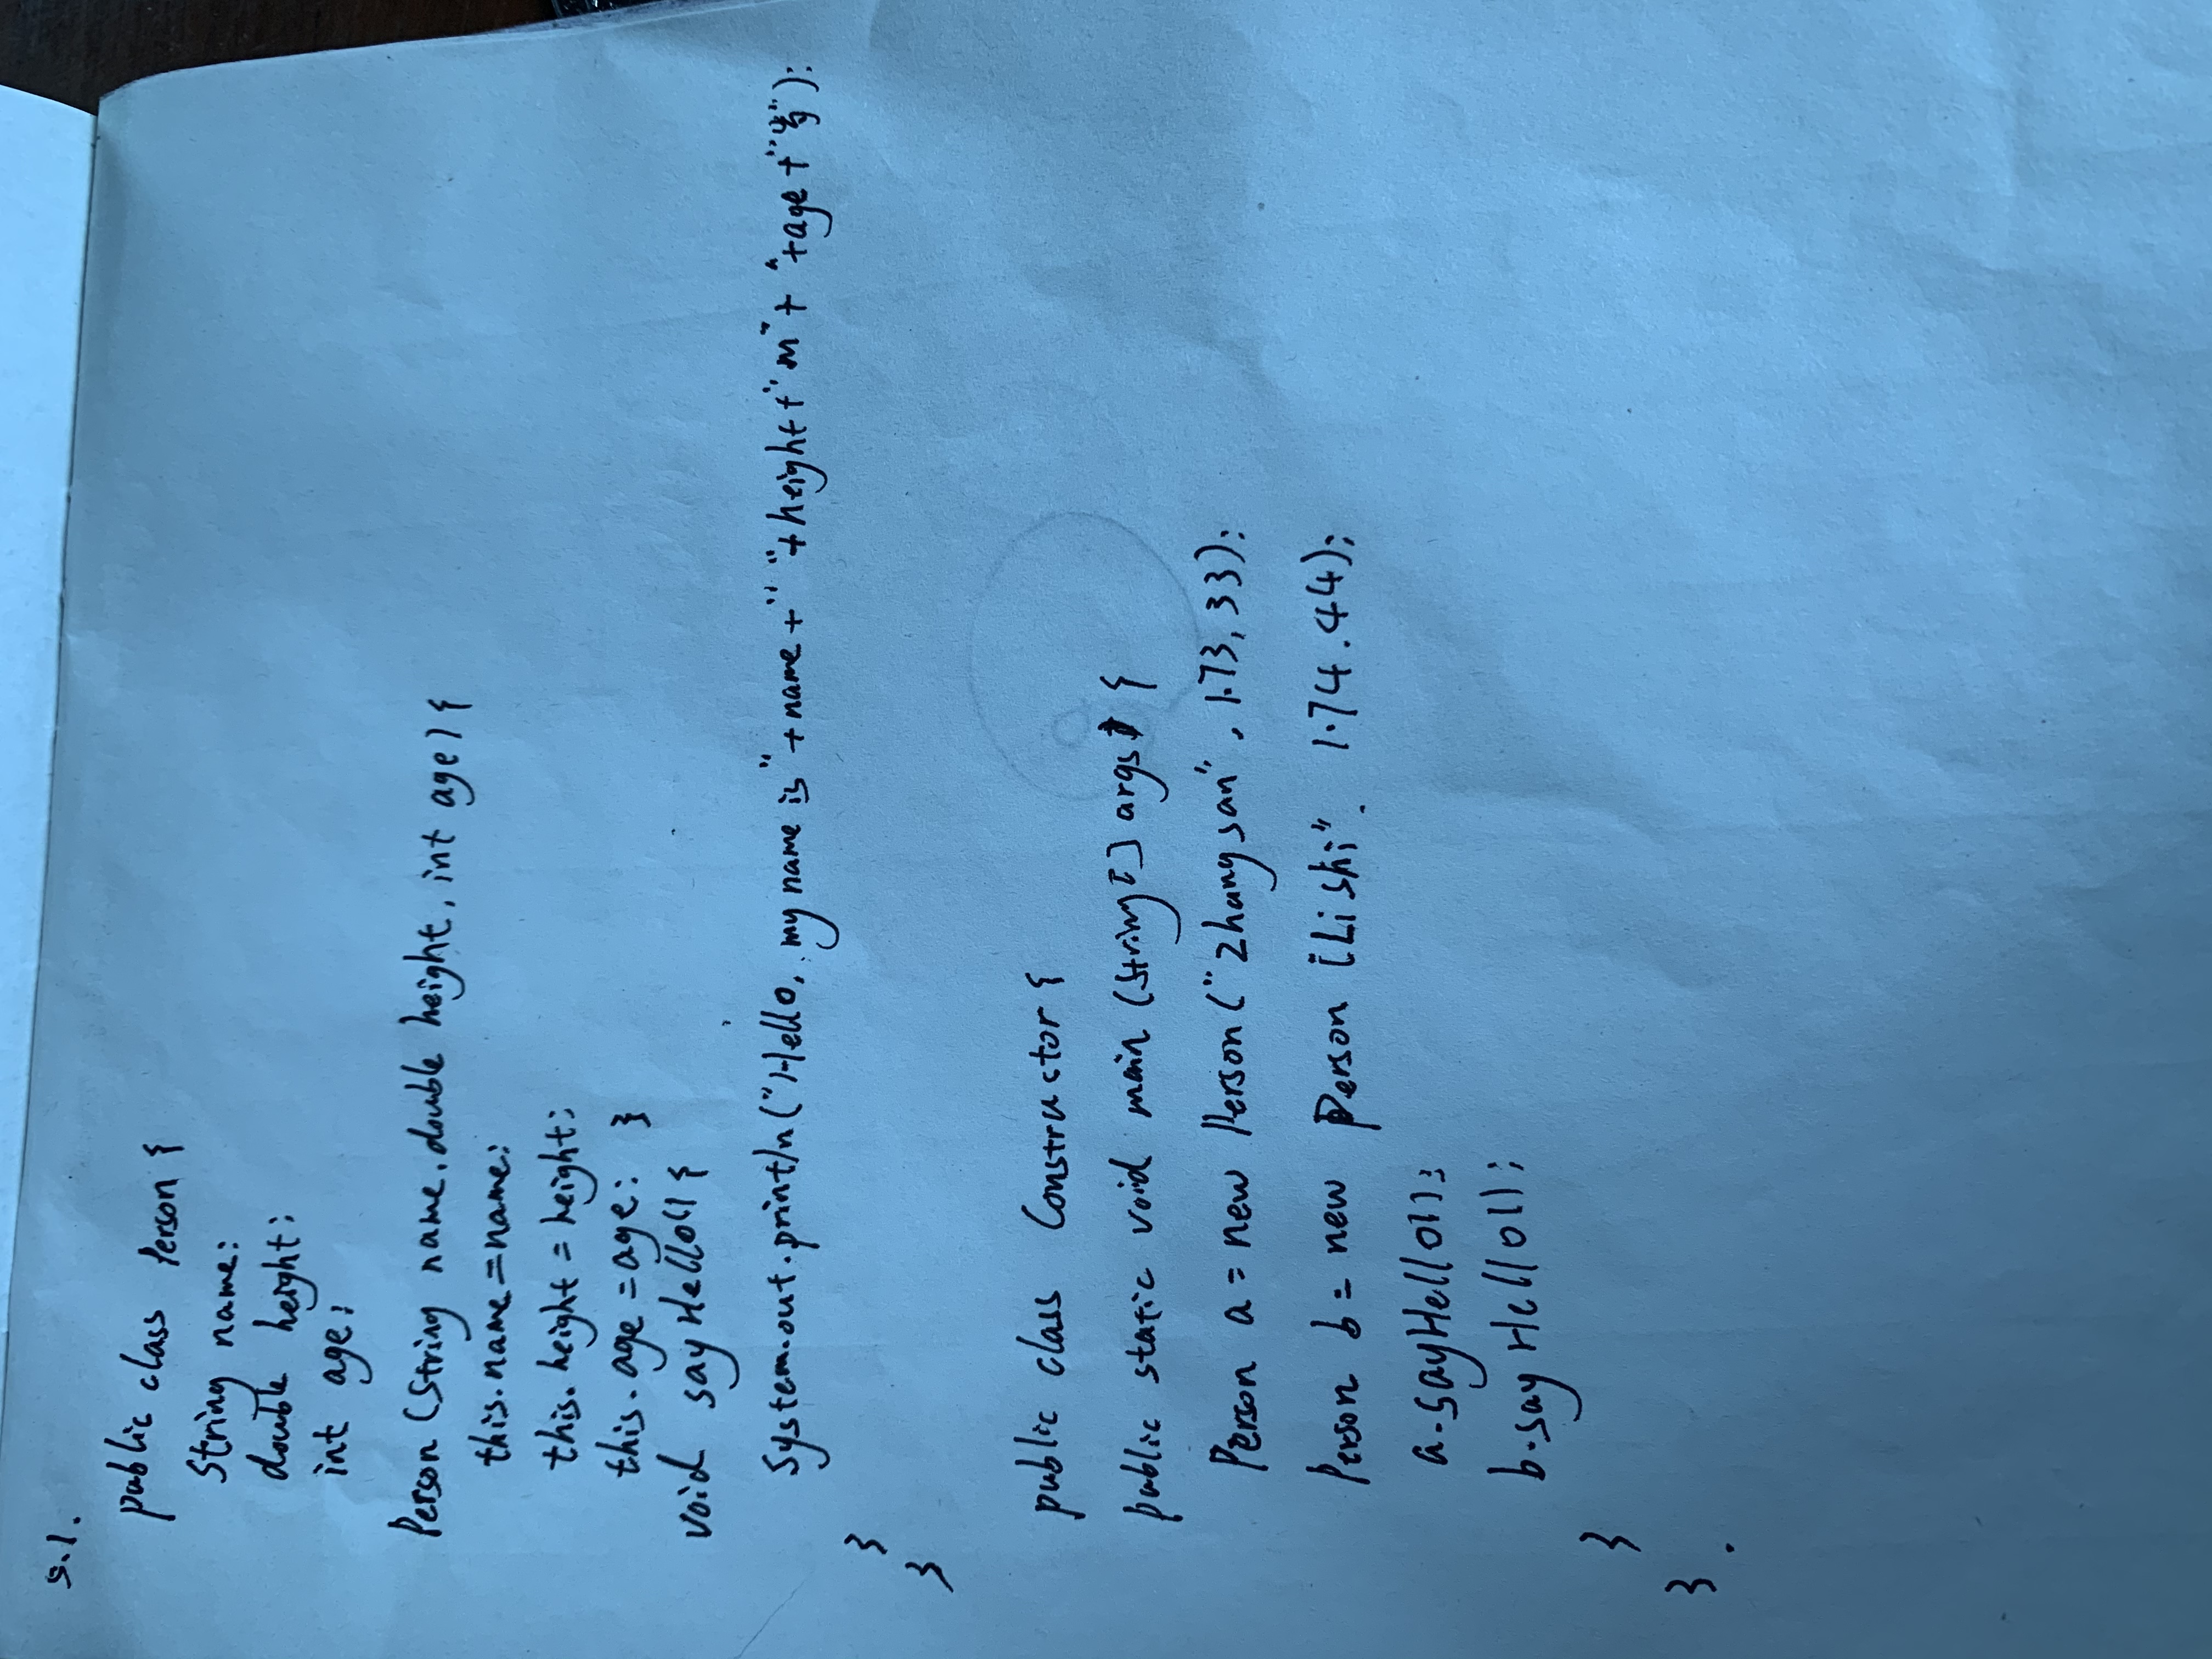 5.1.
public class Person {
String name;
double height;
int age;
Person (String name, double height, int age) {
this.name = name;
this.height = height;
this.age = age; }
void sayHello() {
System.out.println("Hello, my name is" + name + " " + height + "m" + " " + age + "岁");
}
}
public class Constructor {
public static void main (String[] args) {
Person a = new Person ("zhangsan", 1.73, 33);
Person b = new Person ("Lishi", 1.74, 44);
a.sayHello();
b.sayHello();
}
}.